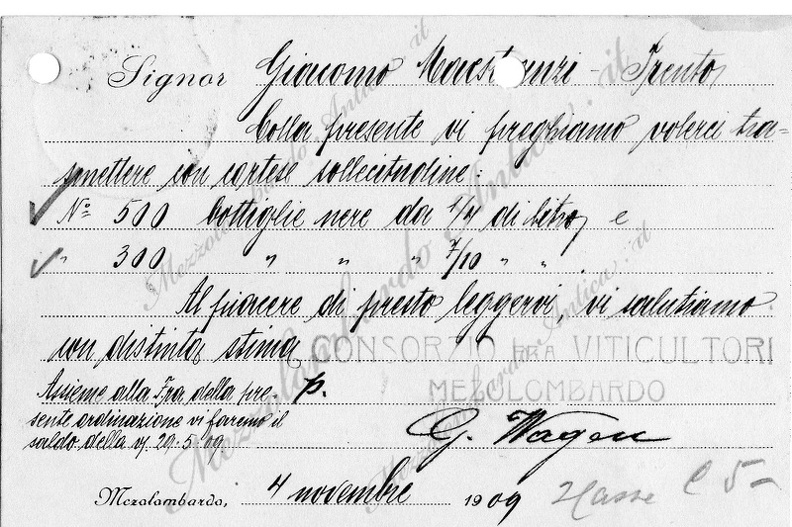 Signor Giacomo Trento
Colla presente vi preghiamo volerci tra=
smettere con cortese sollecitudine:
Nº 500 bottiglie nere da 1/4 di litro, e
" 300 " " " 7/10 " " .
Al piacere di presto leggervi, vi salutiamo
con distinta stima CONSORZIO FRA VITICULTORI
p. MEZOLOMBARDO
Assieme alla Fra della pre-
sente ordinazione vi faremo il
saldo della vs. 29.5.09
G. Wagen
Mezolombardo, 4 novembre 1909
Mezzolombardo Antica.it